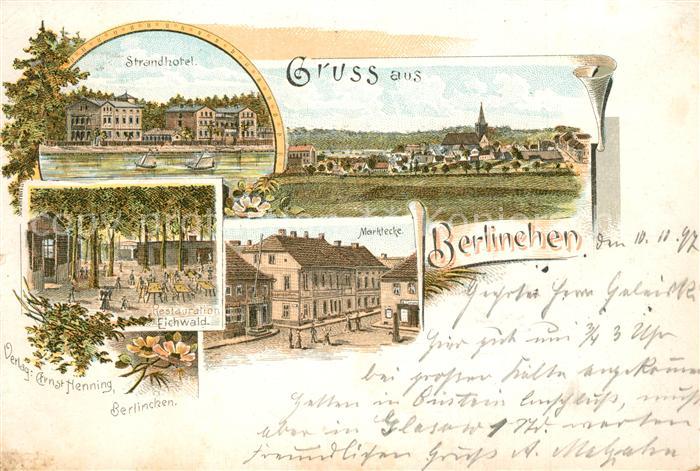 Strandhotel.
Gruss aus
Berlinchen
Marktecke.
Restauration
Eichwald.
Verlag: Ernst Henning,
Berlinchen.
den 10. 10. 97
Geehrter Herr
Hier gut um 3/4 3 Uhr
bei großer Kälte angekommen
Hatten in Cüstrin Anschluß, mußten
aber in Glasow 1 Std. warten
Freundlichen Gruß A.